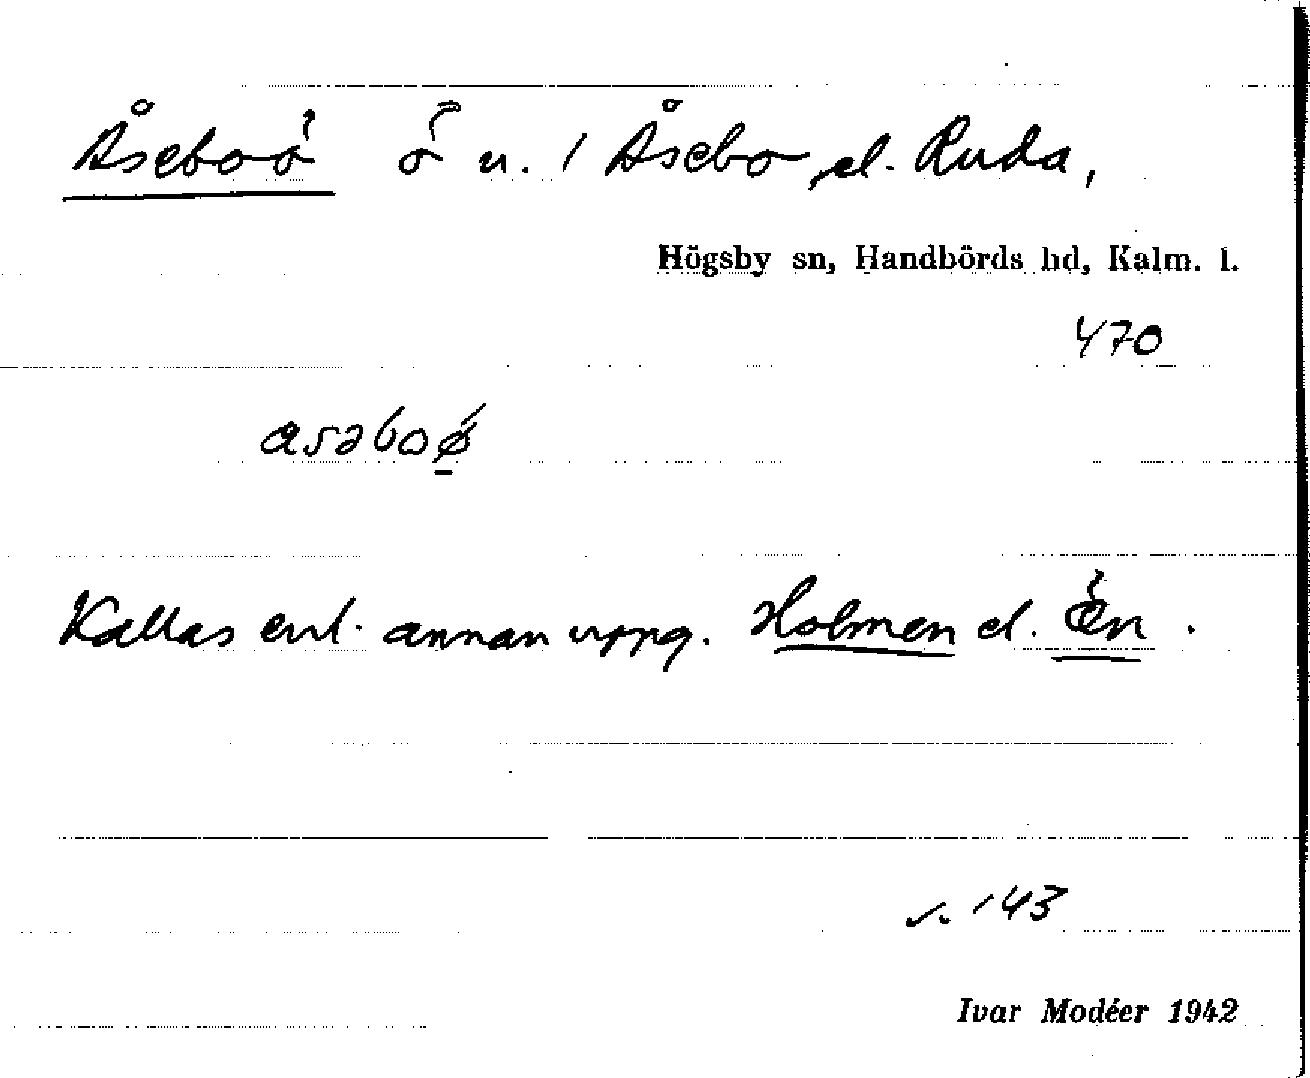 Åseboö ö u. 1 Åsebo, el. Ruda,
Högsby sn, Handbörds hd, Kalm. l.
470
asəboǿ̠
Kallas enl. annan uppg. Holmen el. Ön.
s. 143
Ivar Modéer 1942